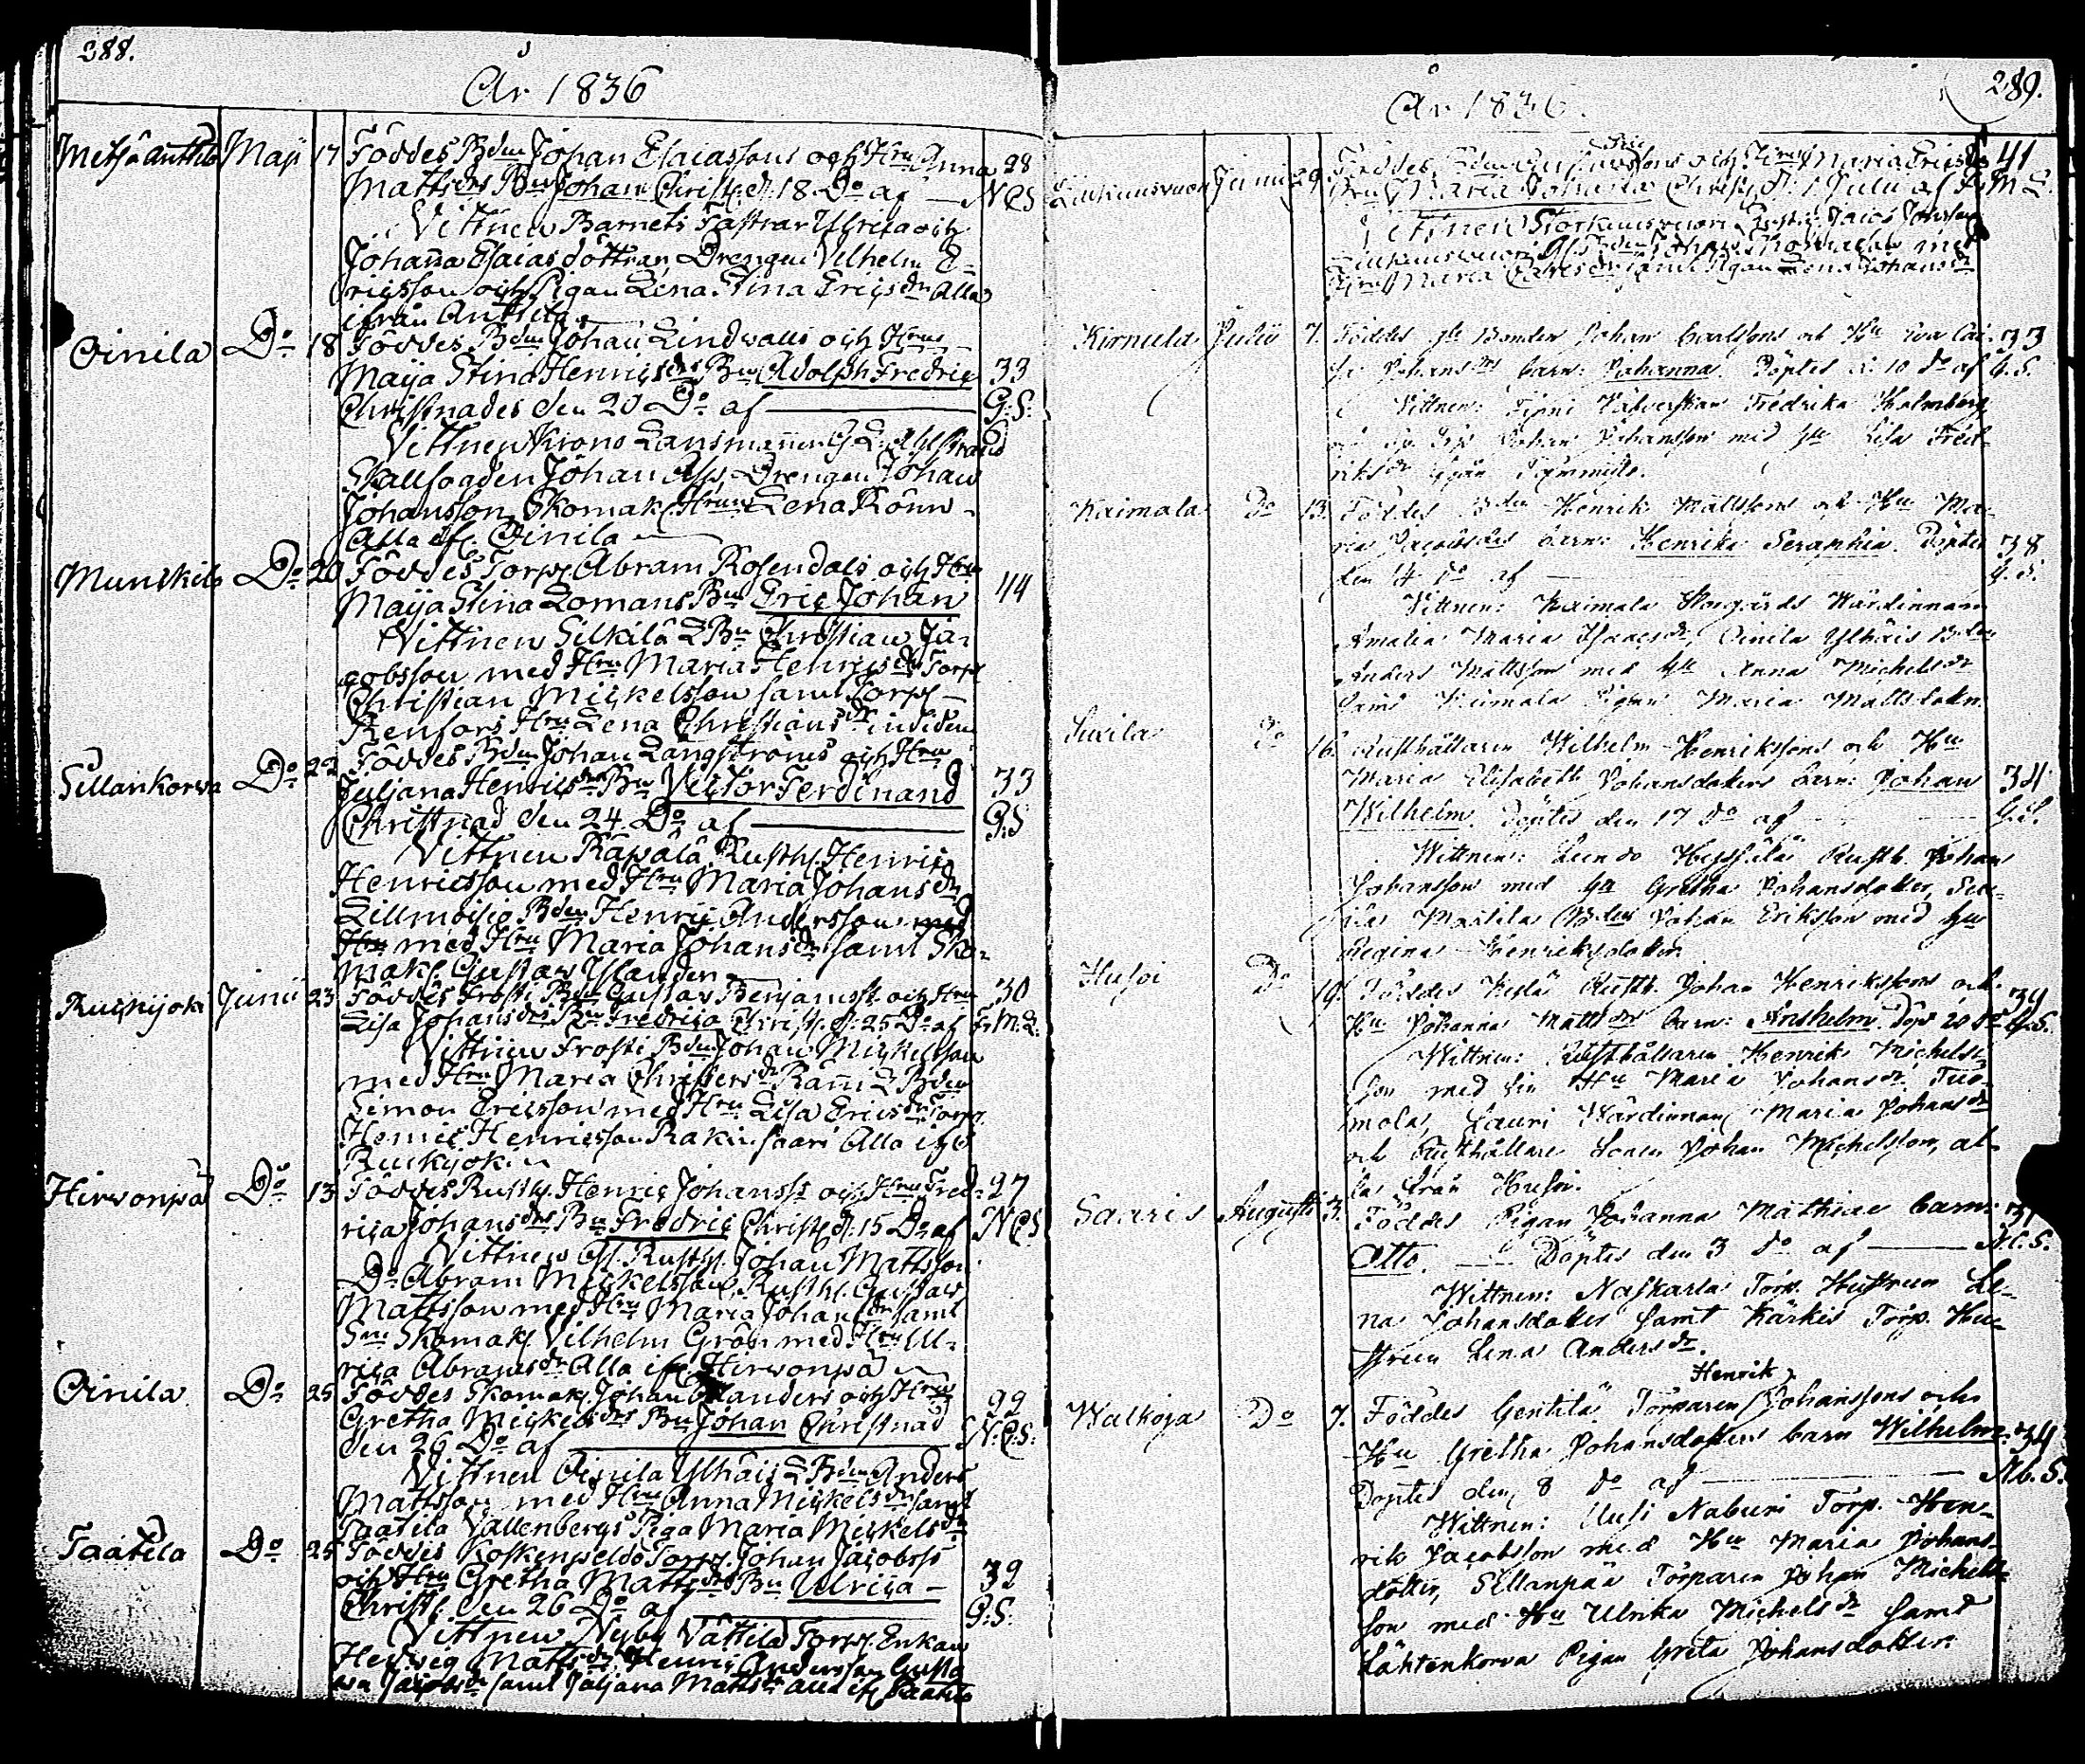 288.
År 1836
Metsäanttila Maji 17 Föddes Bdens Johan Elaiassons och Hru Anna 28
Mattsdrs Bn Johan Christ. d. 18 Do af — NCS
Vittnen Barnets Fastrar Ulrica och
Johanna Esaias döttrar Drengen Vilhelm E-
ricsson och Pigan Lena Stina Ericsdr Alla
ifrån Anttila
Oinila Do 18 Föddes Bdns Johan Lindwalls och Hrus
Maija Stina Henricsdrs Bn Adolph Fredric 33
Christnades den 20 Do af — G:S:
Vittnen Krono Lansmannen G L Ahlstrand
Skallfogden Johan Asp, Drengen Johan
Johansson, Skomak. Hrun Lena Rönn-
Alla ifr. Oinila
Munskila Do 20 Föddes Torp. Abram Rosendals och Hru
Maija Stina Lomans Bn Eric Johan 44
Vittnen Silkilä LBn Christian Ja-
cobsson med Hru Maria Henricsdr Torp.
Christian Mickelsson samt Torp.
Renfors Hru Lena Christiansdr
Sillankorva Do 22 Föddes Bdns Johan Langströms och Hru
Juljana Henricsdrs Bn Victor Ferdinand 33
Christnad den 24 Do af — G:S
Vittnen Rapala Rusth. Henric
Henricsson med Hru Maria Johansdr
Lillmoisio Bden Henric Andersson med
Hru med Hru Maria Johansdr samt Sko-
mak. Gustaw Islander
Ruskijoki Junii 23 Föddes Frosti Bdns Gustav Benjamss. och Hru 30
Lisa Johansdrs Bn Fredrica Christ. d. 25 Do af F.M.L.
Vittnen Frosti Bden Johan Mickelsson
med Hru Maria Christersdr Ranni L Bden
Simon Ericsson med Hru Lisa Ericsdr Torp.
Henric Henricsson Rakinsaari Alla ifr.
Ruskijoki
Hirvonpä Do 13 Föddes Rusth. Henric Johanss. och Hru Fred- 27
rica Johansdrs Bn Fredric Christ. d. 15 Do af NCS
Vittnen Gl. Rusth. Johan Mattsson
Do Abram Mickelsson, Rusth. Gustav
Mattsson med Hru Maria Johansdr samt
Skomak. Vilhelm Grön med Hru Ul-
rica Abramsdr Alla ifr Hirvonpä
Oinila Do 25 Föddes Skomak. Johan Olanders och Hru
Gretha Mickelsdrs Bn Johan Christnad 22
den 26 Do af — N:C:S:
Vittnen Oinila Ylhäis L Bden Anders
Mattsson med Hru Anna Mickelsdr samt
Taatila Vallenbergs Piga Maria Mickelsdr
Taatila Do 25 Föddes Koskenpeldo Torp. Johan Jacobss.
och Hru Gretha Mattsdrs Bn Ulrica — 32
Christ. den 26 Do af — G:S:
Vittnen Nyby Vättilä Torp. Enkan
Hedvig Mattsdr Henric Andersson Gusta-
va Jacobsdr samt Juljana Mattsdr alla ifr. Taatila
289.
År 1836.
Junii 29. Föddes och Hrus Maria Erics- 41
Maria Johanna Christ. d. 1 Julii af F.M.L.
Vittnen Jacob Johansson
med
Hru Maria samt Pigan Lena Johansdr
Kirmula Julii 7. Föddes Bonden Johan Carlssons och Hu Eva Cai- 33
sa Johansdrs barn: Johanna. Döptes d. 10 do af G.S.
Vittnen: Fredrika Holmberg
Johan Johansson med Hu Lisa Fred-
riksdr
Kaimala Do 13. Föddes Bden Henrik Mattssons och Hu Ma-
ria Jacobsdrs barn: Henrika Seraphia. Döptes 38
den 14 do af — G.S.
Vittnen: Kaimala Storgårds Wärdinnan
Amalia Maria Isaacsdr, Oinila Ylhäis Bden
Anders Mattsson med Hu Anna Michelsdr
samt Kaimala Pigan Maria Mattsdoter.
Do 16. Rusthållaren Wilhelm Henrikssons och Hu
Maria Elisabeth Johansdoters barn: Johan 34
Wilhelm. Döptes den 17 do af — G.S.
Wittnen: Rusth. Johan
Johansson med Hu Gretha Johansdotter,
Bden Johan Eriksson med Hu
Regina Henriksdotter.
Husoi Do 19. Föddes Rusth. Johan Henrikssons och 39
Hu Johanna Mattsdrs barn: Anshelm. Döpt 20 do G.S.
Wittnen: Rusthållaren Henrik Michels-
son med sin Hu Maria Johansdr,
Lauri Wärdinnan Maria Johansdr
och Rusthållare Sonen Johan Michelsson, al-
la från Husoi.
Saaris Augusti 3. Föddes Pigan Johanna Mathiae barn: 31
Otto. — Döptes den 3 do af — N.C.S.
Wittnen: Naskarla Torp. Hustrun Le-
na Johansdoter samt Kärkis Torp. Hu-
strun Lena Andersdr.
Henrik
Walkoja Do 7. Föddes Gentilä Torparen Johanssons och
Hu Gretha Johansdotters barn Wilhelm. 34
Döptes den 8 do af — N.C.S.
Wittnen: Uusi Naburi Torp. Hen-
rik Jacobsson med Hu Maria Johans-
dotter, Sillanpää Torparen Johan Michels-
son med Hu Ulrika Michelsdr samt
Lähtenkorva Pigan Greta Johansdotter.